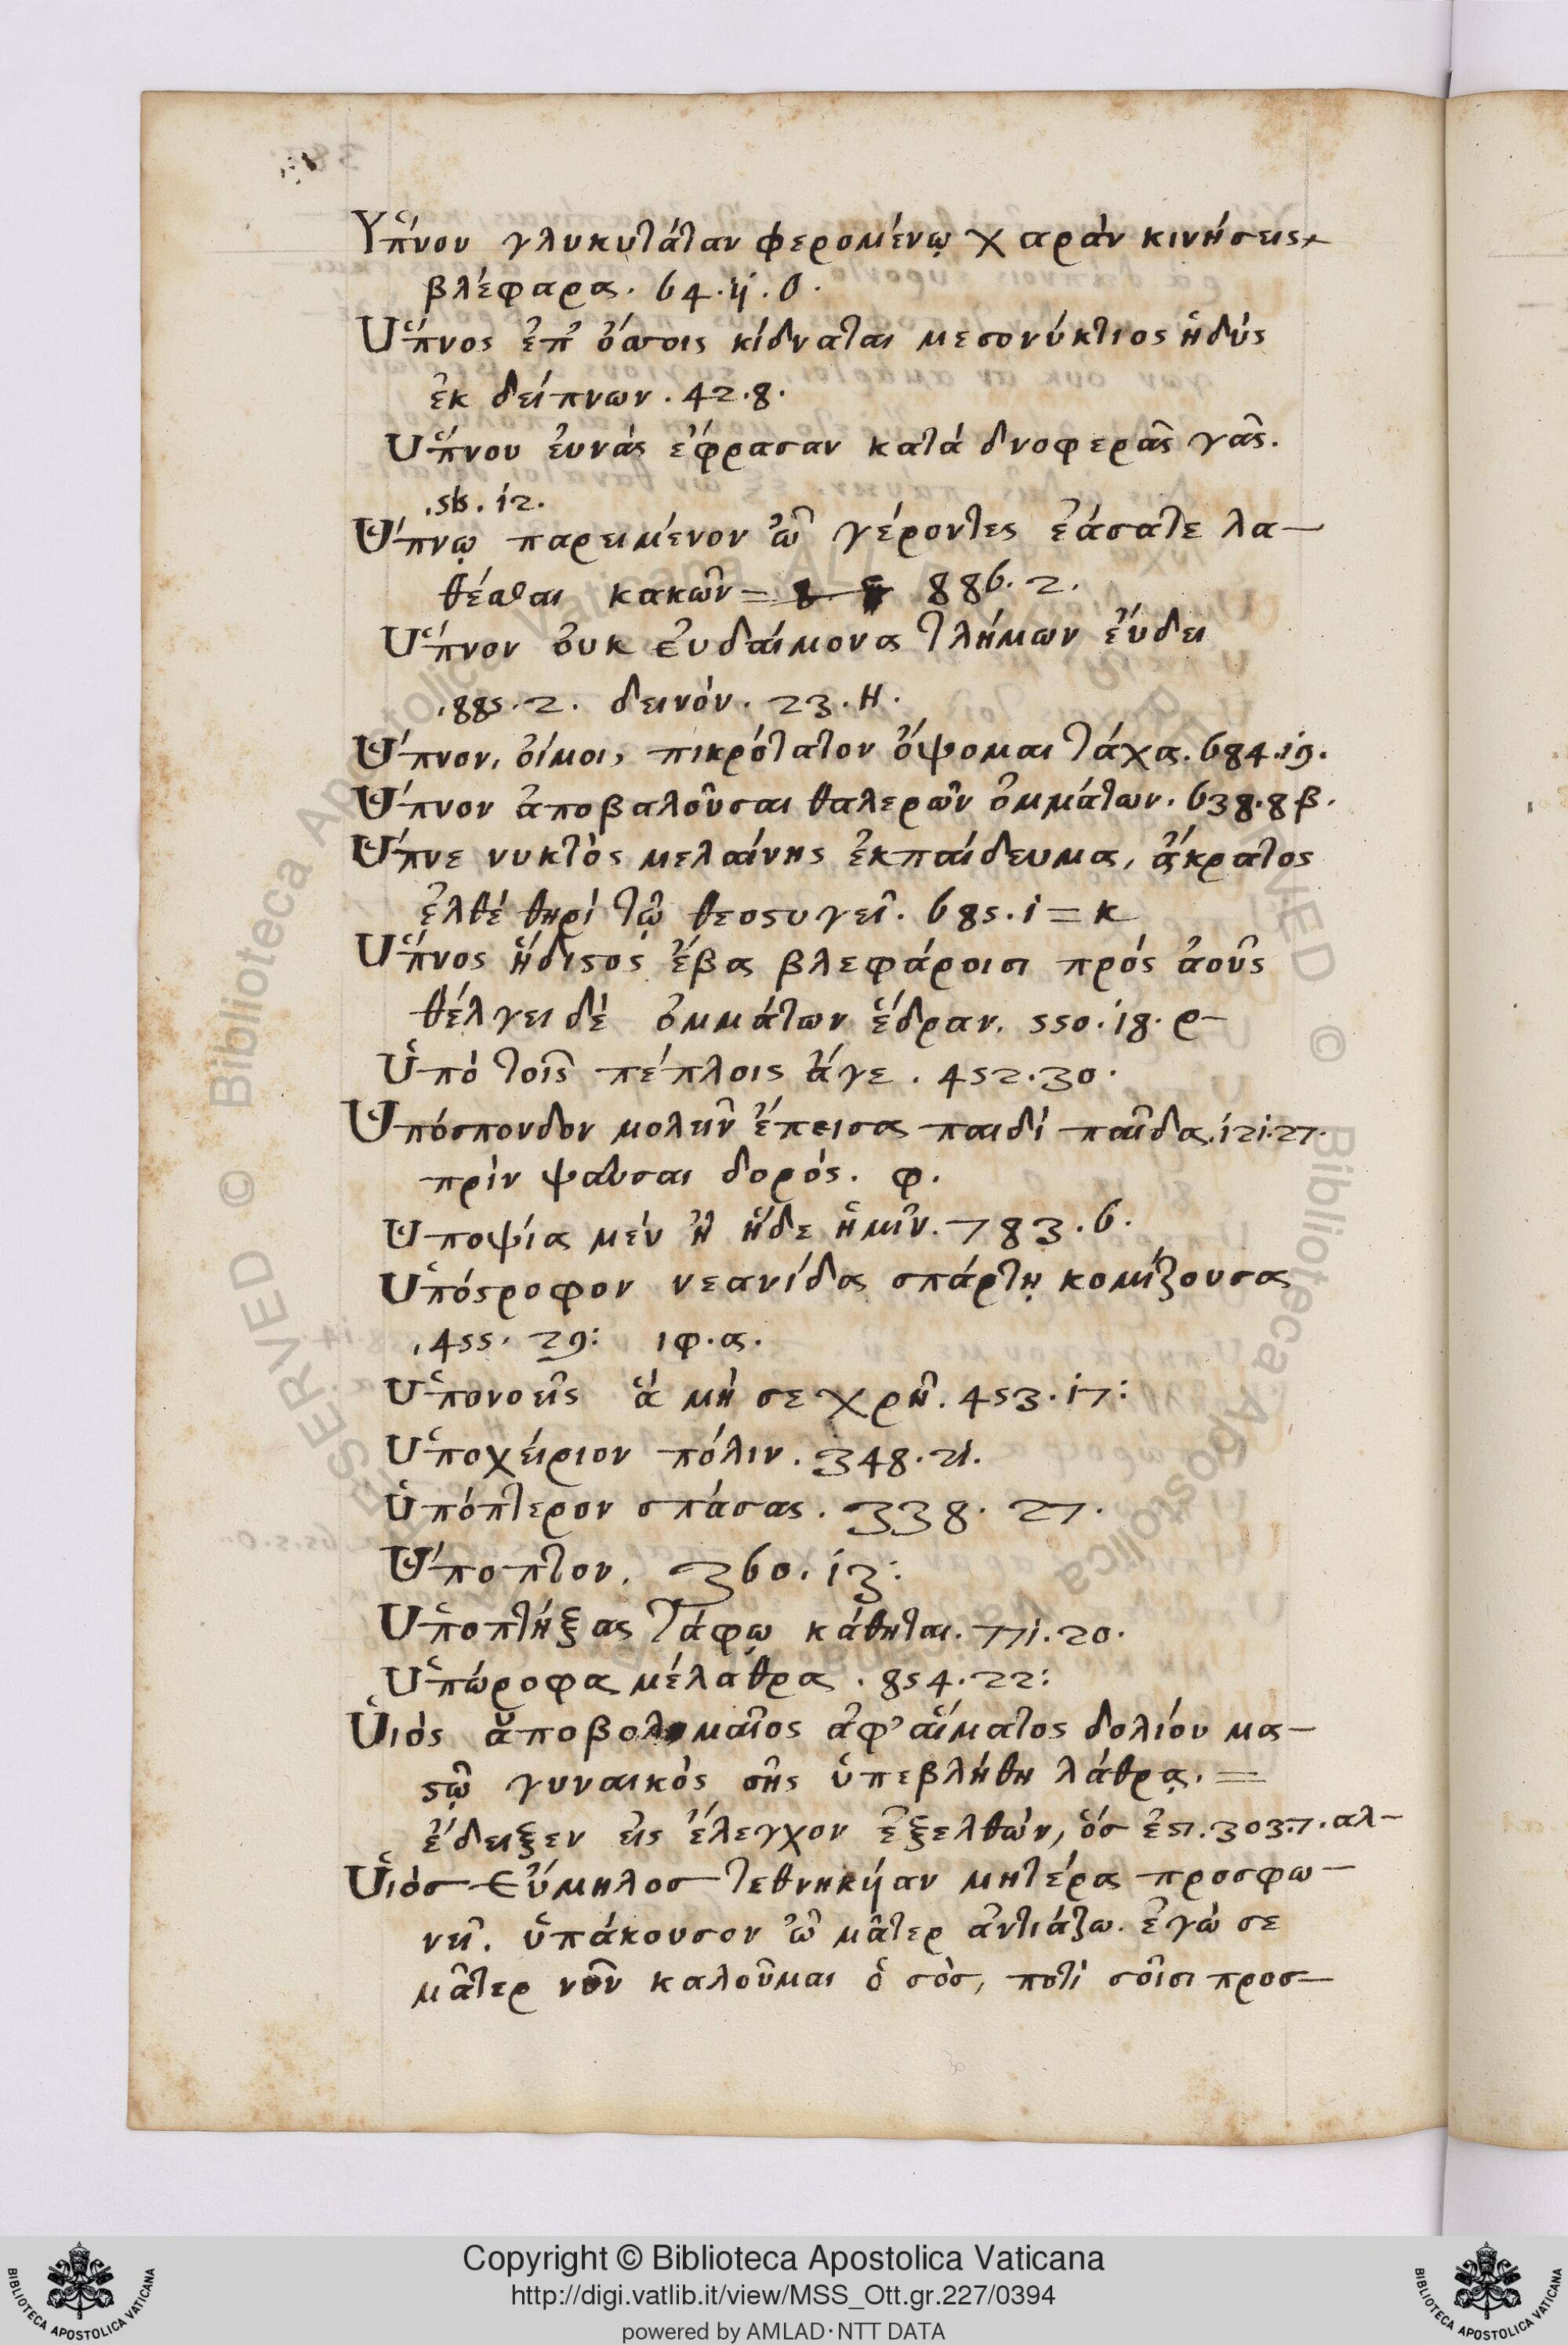 Ὕπνου γλυκυτάταν φερομένῳ χαρὰν κινήσεις
βλέφαρα. 64.ij.0.
Ὕπνος ἐπ' ὄσσοις κίδναται μεσονύκτιος ἡδὺς
ἐκ δείπνων. 42.8.
Ὕπνου ἐυνὰς ἔφρασαν κατὰ δνοφερᾶς γᾶς.
.56. 12.
Ὕπνῳ παρειμένον ὦ γέροντες ἐάσατε λα-
θέσθαι κακῶν = 886. 2.
Ὕπνον ὀυκ ἐυδαίμονα τλήμων ἔυδει
.885. 2. δεινόν. 23. Η.
Ὕπνον, ὄιμοι, πικρότατον ὄψομαι τάχα. 684. 19.
Ὕπνον ἀποβαλοῦσαι θαλερῶν ὀμμάτων. 638. 8 β.
Ὕπνε νυκτὸς μελαίνης ἐκπαίδευμα, ἄκρατος
ἐλθὲ θηρὶ τῷ θεοστυγεῖ. 685. 1 = κ
Ὕπνος ἥδιστος ἔβα βλεφάροισι πρὸς ἀοῦς
θέλγει δὲ ὀμμάτων ἕδραν. 550. 18. ρ-
Ὑπὸ τοῖς πέπλοις ἄγε. 452. 30.
Ὑπόσπονδον μολεῖν ἔπεισα παιδὶ παῖδα. 121. 27.
πρὶν ψαῦσαι δορός. φ.
Ὑποψία μέν ἦ ἥδε ἡμῖν. 783. 6.
Ὑπόστροφον νεανίδα σπάρτῃ κομίζουσα
.455. 29: ιφ. α.
Ὑπονοεῖς ἃ μή σε χρῆ. 453. 17:
Ὑποχείριον πόλιν. 348. 21.
Ὑπόπτερον σπάσας. 338. 27.
Ὕποπτον. 360. 13:
Ὑποπτήξας τάφῳ κάθηται. 771. 20.
Ὑπώροφα μέλαθρα. 854. 22:
Ὑιὸς ἀποβολιμαῖος ἀφ' αἵματος δολίου μα-
στῷ γυναικὸς σῆς ὑπεβλήθη λάθρᾳ. =
ἔδειξεν εἰς ἔλεγχον ἐξελθών, ὅς ἐστ. 303. 7. αλ-
Ὑιὸς Εὔμηλος τεθνηκῖjαν μητέρα προσφω-
νεῖ. ὑπάκουσον ὦ μᾶτερ ἀντιάζω. ἐγώ σε
μᾶτερ νῦν καλοῦμαι ὁ σὸς, ποτὶ σοῖσι προσ-
Copyright © Biblioteca Apostolica Vaticana
http://digi.vatlib.it/view/MSS_Ott.gr.227/0394
powered by AMLAD·NTT DATA